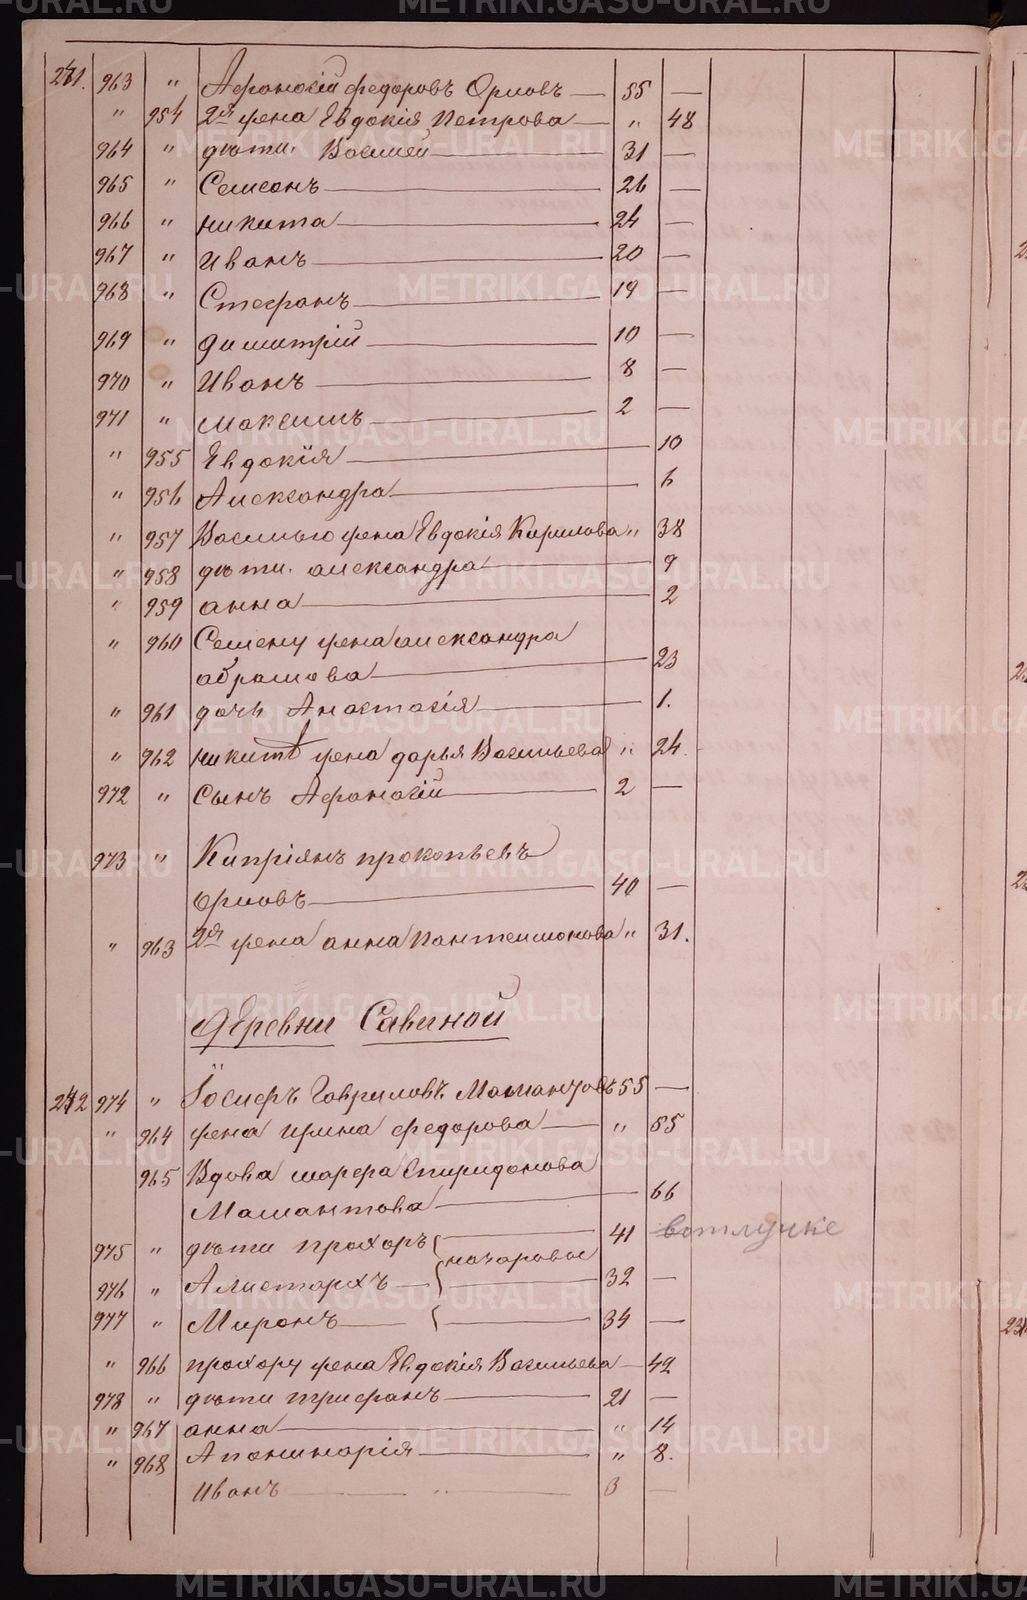 271. 963 " Афонасій федоровъ Орловъ — 55 —
" 954 2я жена Евдокія Петрова — " 48
964 " дѣти. Василей — 31 —
965 " Семеонъ — 26 —
966 " никита — 24 —
967 " иванъ — 20 —
968 " Стефанъ — 19 —
969 " димитрій — 10 —
970 " Иванъ — 8 —
971 " максимъ — 2 —
" 955 Евдокія — 10
" 956 Александра — 6
" 957 Василью жена Евдокія Кирилова " 38
" 958 дѣти. александра — 9
" 959 анна — 2
" 960 Семену жена александра
абрамова — 23
" 961 дочь Анастасія — 1.
" 962 никитѣ жена дарья Васильева " 24.
972 " сынъ Афонасій — 2 —
973 " Кипріянъ прокопьевъ
орловъ — 40 —
" 963 2я жена анна пантелимонова " 31.
Деревни Савиной
272 974 " Іосифъ Гавриловъ Мамантовъ 55 —
" 964 жена ирина федорова — " 55
965 Вдова марфа Спиридонова
Мамантова — 66
975 " дѣти прохоръ — 41 — вотлучке
назаровы
976 " Алистархъ — 32 —
977 " Миронъ — 34 —
" 966 прохору жена Евдокія Васильева — 42
978 " дѣти трифанъ — 21 —
" 967 анна — " 14
" 968 Аполинарія — " 8.
иванъ — " — 3 —
METRIKI.GASO-URAL.RU